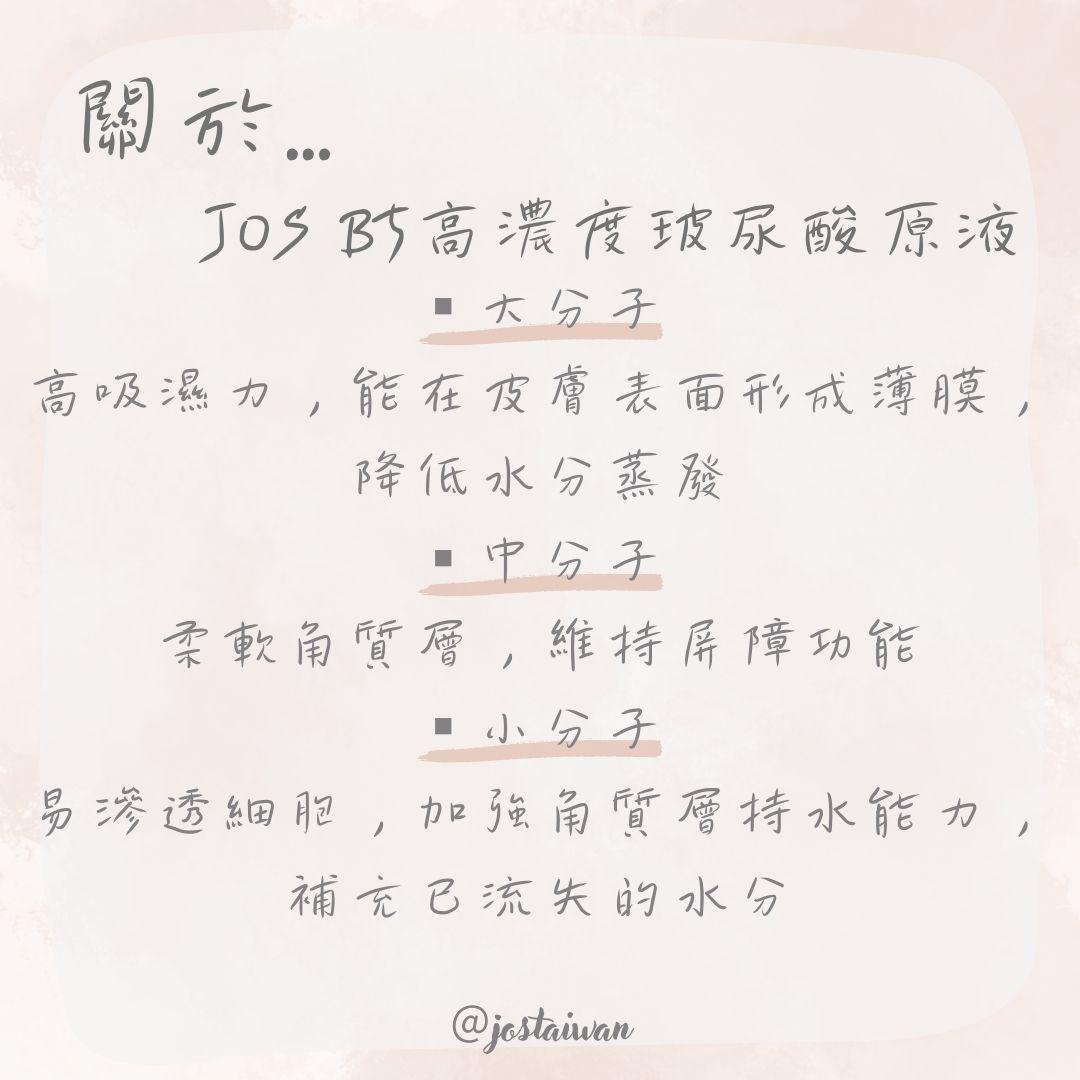 關於...
JOS B5高濃度玻尿酸原液
▪ 大分子
高吸濕力，能在皮膚表面形成薄膜，
降低水分蒸發
▪ 中分子
柔軟角質層，維持屏障功能
▪ 小分子
易滲透細胞，加強角質層持水能力，
補充已流失的水分
@jostaiwan